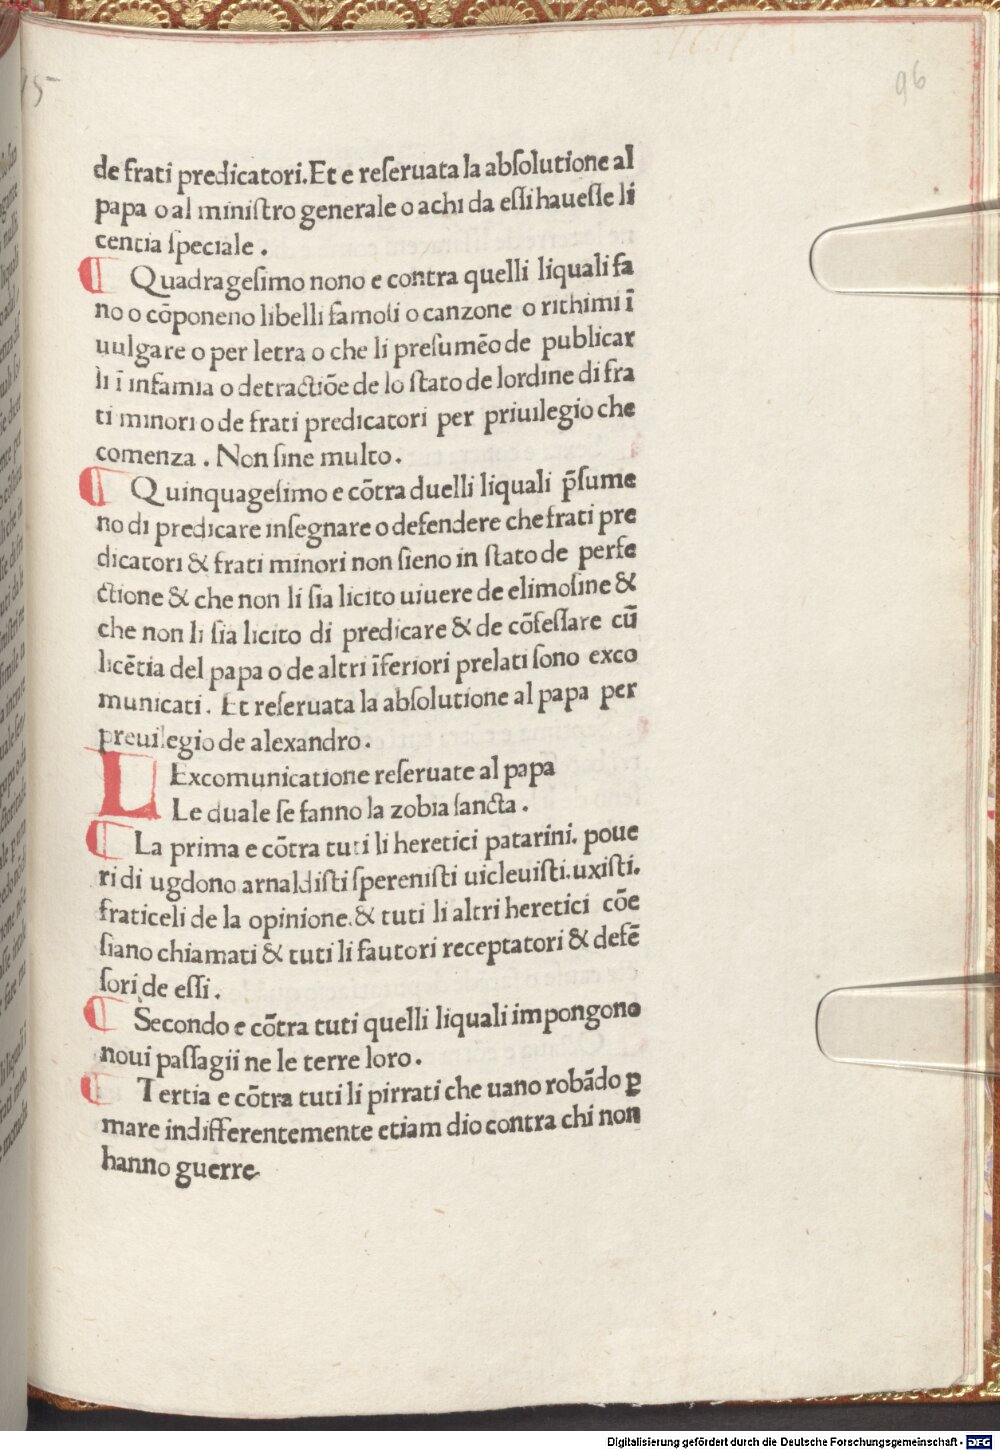 96
de frati predicatori.Et e reſeruata la abſolutione al
papa o al miniſtro generale o achi da eſſi haueſſe li
centia ſpeciale .
¶ Quadrageſimo nono e contra quelli liquali fa
no o cōponeno libelli famoſi o canzone o rithimi ī
uulgare o per letra o che li preſumēo de publicar
li ī infamia o detractiōe de lo ſtato de lordine di fra
ti minori o de frati predicatori per priuilegio che
comenza . Non ſine multo .
¶ Quinquageſimo e cōtra duelli liquali p̄ſume
no di predicare inſegnare o defendere che frati pre
dicatori & frati minori non ſieno in ſtato de perfe
ctione & che non li ſia licito uiuere de elimoſine &
che non li ſia licito di predicare & de cōfeſſare cū
licētia del papa o de altri īferiori prelati ſono exco
municati . Et reſeruata la abſolutione al papa per
preuilegio de alexandro .
L Excomunicatione reſeruate al papa
Le duale ſe fanno la zobia ſancta .
¶ La prima e cōtra tuti li heretici patarini. poue
ri di ugdono arnaldiſti ſpereniſti uicleuiſti.uxiſti.
fraticeli de la opinione.& tuti li altri heretici cōe
ſiano chiamati & tuti li fautori receptatori & defē
ſori de eſſi .
¶ Secondo e cōtra tuti quelli liquali impongono
noui paſſagii ne le terre loro .
¶ Tertia e cōtra tuti li pirrati che uano robādo ꝑ
mare indifferentemente etiam dio contra chi non
hanno guerre
Digitalisierung gefördert durch die Deutsche Forschungsgemeinschaft - DFG